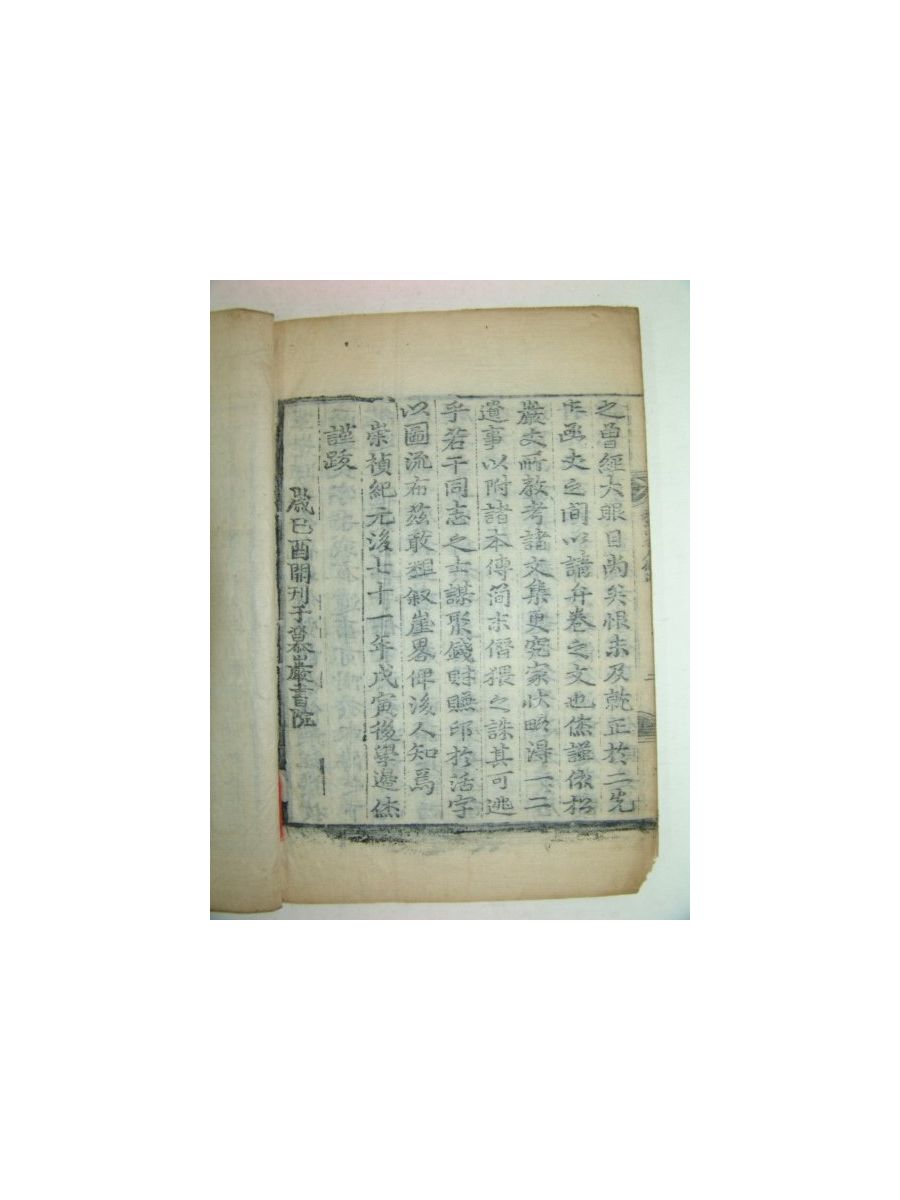 之曾經大眼目尙矣恨未及就正於二先
生函丈之間以請弁卷之文也烋謹倣松
巖文所敎考諸文集更究家狀略淂一二
遺事以附諸本傳簡末僭猥之誅其可逃
乎若干同志之士謀聚錢財賺印於活字
以圖流布玆敢粗叙崖畧俾後人知焉
崇禎紀元後七十一年戊寅後學邊烋
謹跋
歲己酉開刊于慕巖書院